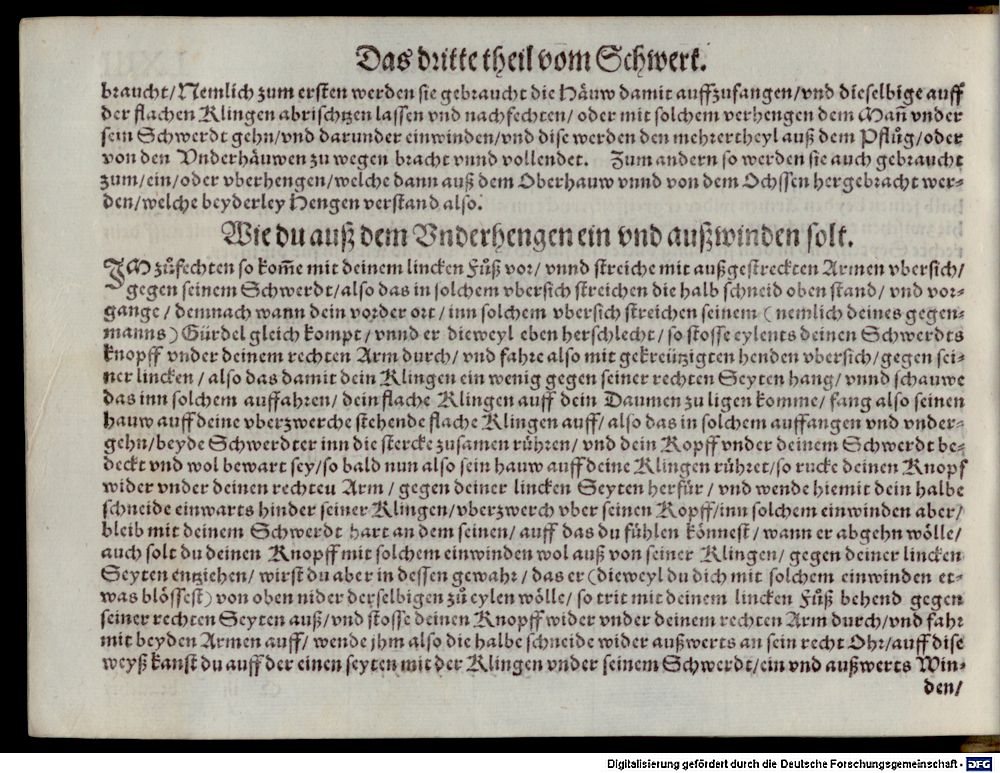 Das dritte theil vom Schwert.
braucht/Nemlich zum ersten werden sie gebraucht die Häuw damit auffzufangen/vnd dieselbige auff
der flachen Klingen abrischtzen lassen vnd nachfechten/ oder mit solchem verhengen dem Mañ vnder
sein Schwerdt gehn/vnd darunder einwinden/vnd dise werden den mehrertheyl auß dem Pflůg/oder
von den Vnderhäuwen zu wegen bracht vnnd vollendet. Zum andern so werden sie auch gebraucht
zum/ein/oder vberhengen/welche dann auß dem Oberhauw vnnd von dem Ochssen hergebracht wer-
den/welche beyderley Hengen verstand also.
Wie du auß dem Vnderhengen ein vnd außwinden solt.
IM zůfechten so kom̃e mit deinem lincken Fůß vor/ vnnd streiche mit außgestreckten Armen vbersich/
gegen seinem Schwerdt/also das in solchem vbersich streichen die halb schneid oben stand/ vnd vor-
gange/ demnach wann dein vorder ort/ inn solchem vbersich streichen seinem (nemlich deines gegen-
manns) Gürdel gleich kompt/ vnnd er dieweyl eben herschlecht/ so stosse eylents deinen Schwerdts
knopff vnder deinem rechten Arm durch/ vnd fahre also mit gekreützigten henden vbersich/gegen sei-
ner lincken/ also das damit dein Klingen ein wenig gegen seiner rechten Seyten hang/ vnnd schauwe
das inn solchem auffahren/ dein flache Klingen auff dein Daumen zu ligen komme/ fang also seinen
hauw auff deine vberzwerche stehende flache Klingen auff/also das in solchem auffangen vnd vnder-
gehn/beyde Schwerdter inn die stercke zusamen rühren/ vnd dein Kopff vnder deinem Schwerdt be-
deckt vnd wol bewart sey/so bald nun also sein hauw auff deine Klingen rühret/so rucke deinen Knopf
wider vnder deinen rechteu Arm/ gegen deiner lincken Seyten herfür/ vnd wende hiemit dein halbe
schneide einwarts hinder seiner Klingen/vberzwerch vber seinen Kopff/inn solchem einwinden aber/
bleib mit deinem Schwerdt hart an dem seinen/ auff das du fühlen könnest/ wann er abgehn wölle/
auch solt du deinen Knopff mit solchem einwinden wol auß von seiner Klingen/ gegen deiner lincken
Seyten entziehen/ wirst du aber in dessen gewahr/ das er (dieweyl du dich mit solchem einwinden et-
was blössest) von oben nider derselbigen zů eylen wölle/ so trit mit deinem lincken Fůß behend gegen
seiner rechten Seyten auß/vnd stosse deinen Knopff wider vnder deinem rechten Arm durch/vnd fahr
mit beyden Armen auff/ wende jhm also die halbe schneide wider außwerts an sein recht Ohr/auff dise
weyß kanst du auff der einen seyten mit der Klingen vnder seinem Schwerdt/ein vnd außwerts Win-
den/
Digitalisierung gefördert durch die Deutsche Forschungsgemeinschaft - DFG